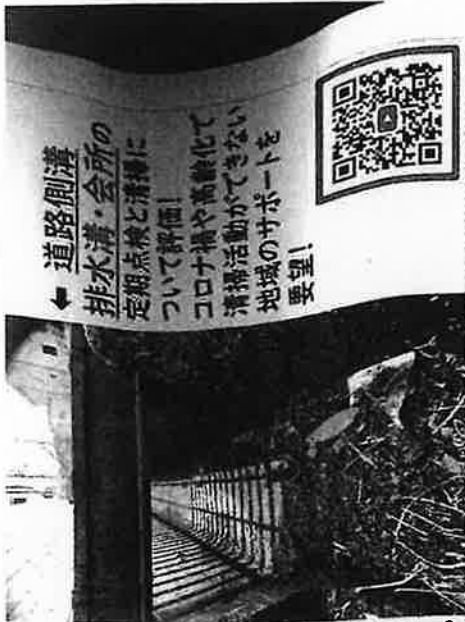 ← 道路側溝
排水溝・会所の
定期点検と清掃に
ついて評価!
コロナ禍や高齢化で
清掃活動ができない
地域のサポートを
要望!